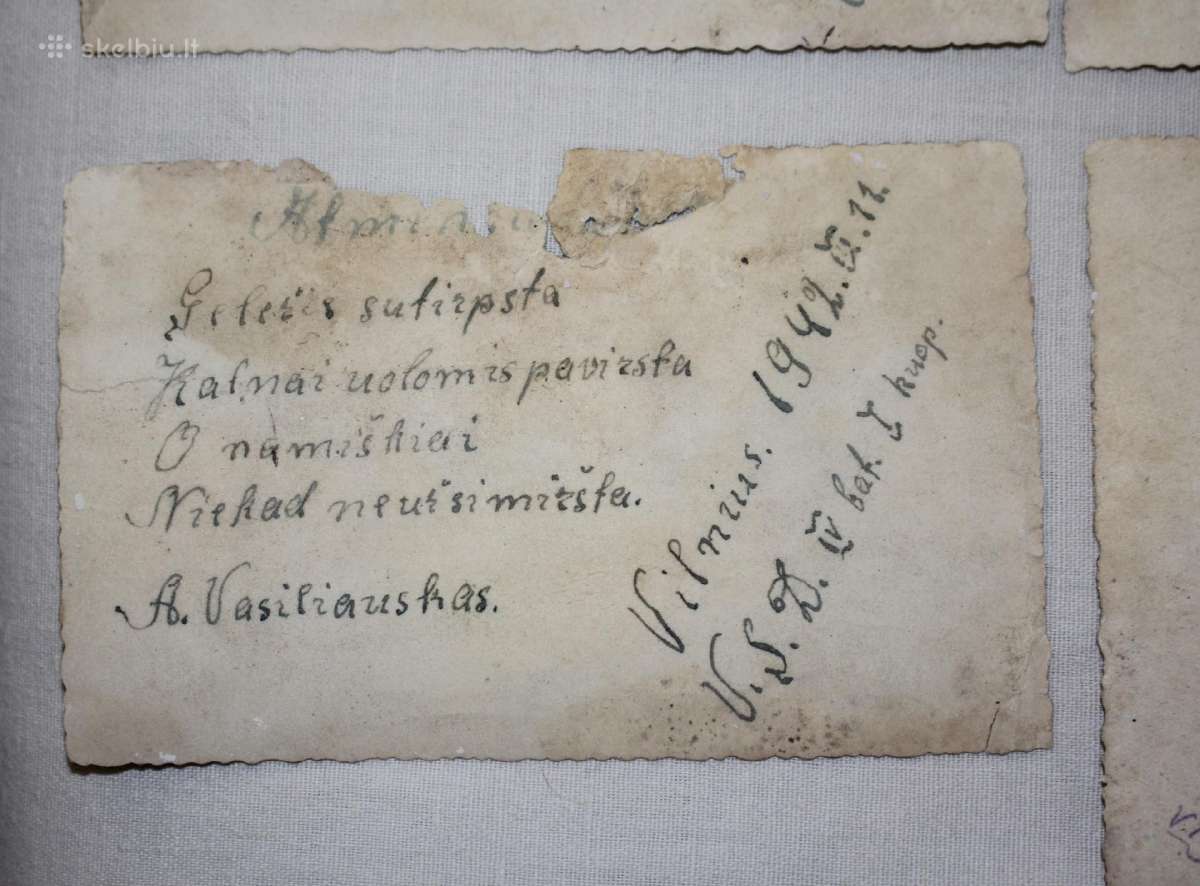 skelbiu.lt
Geležis sutirpsta
Kalnai uolomis pavirsta
O namiškiai
Niekad neužsimiršta.
A. Vasiliauskas.
Vilnius. 1942.IX.11.
V.S.D. IV bat. I kuop.